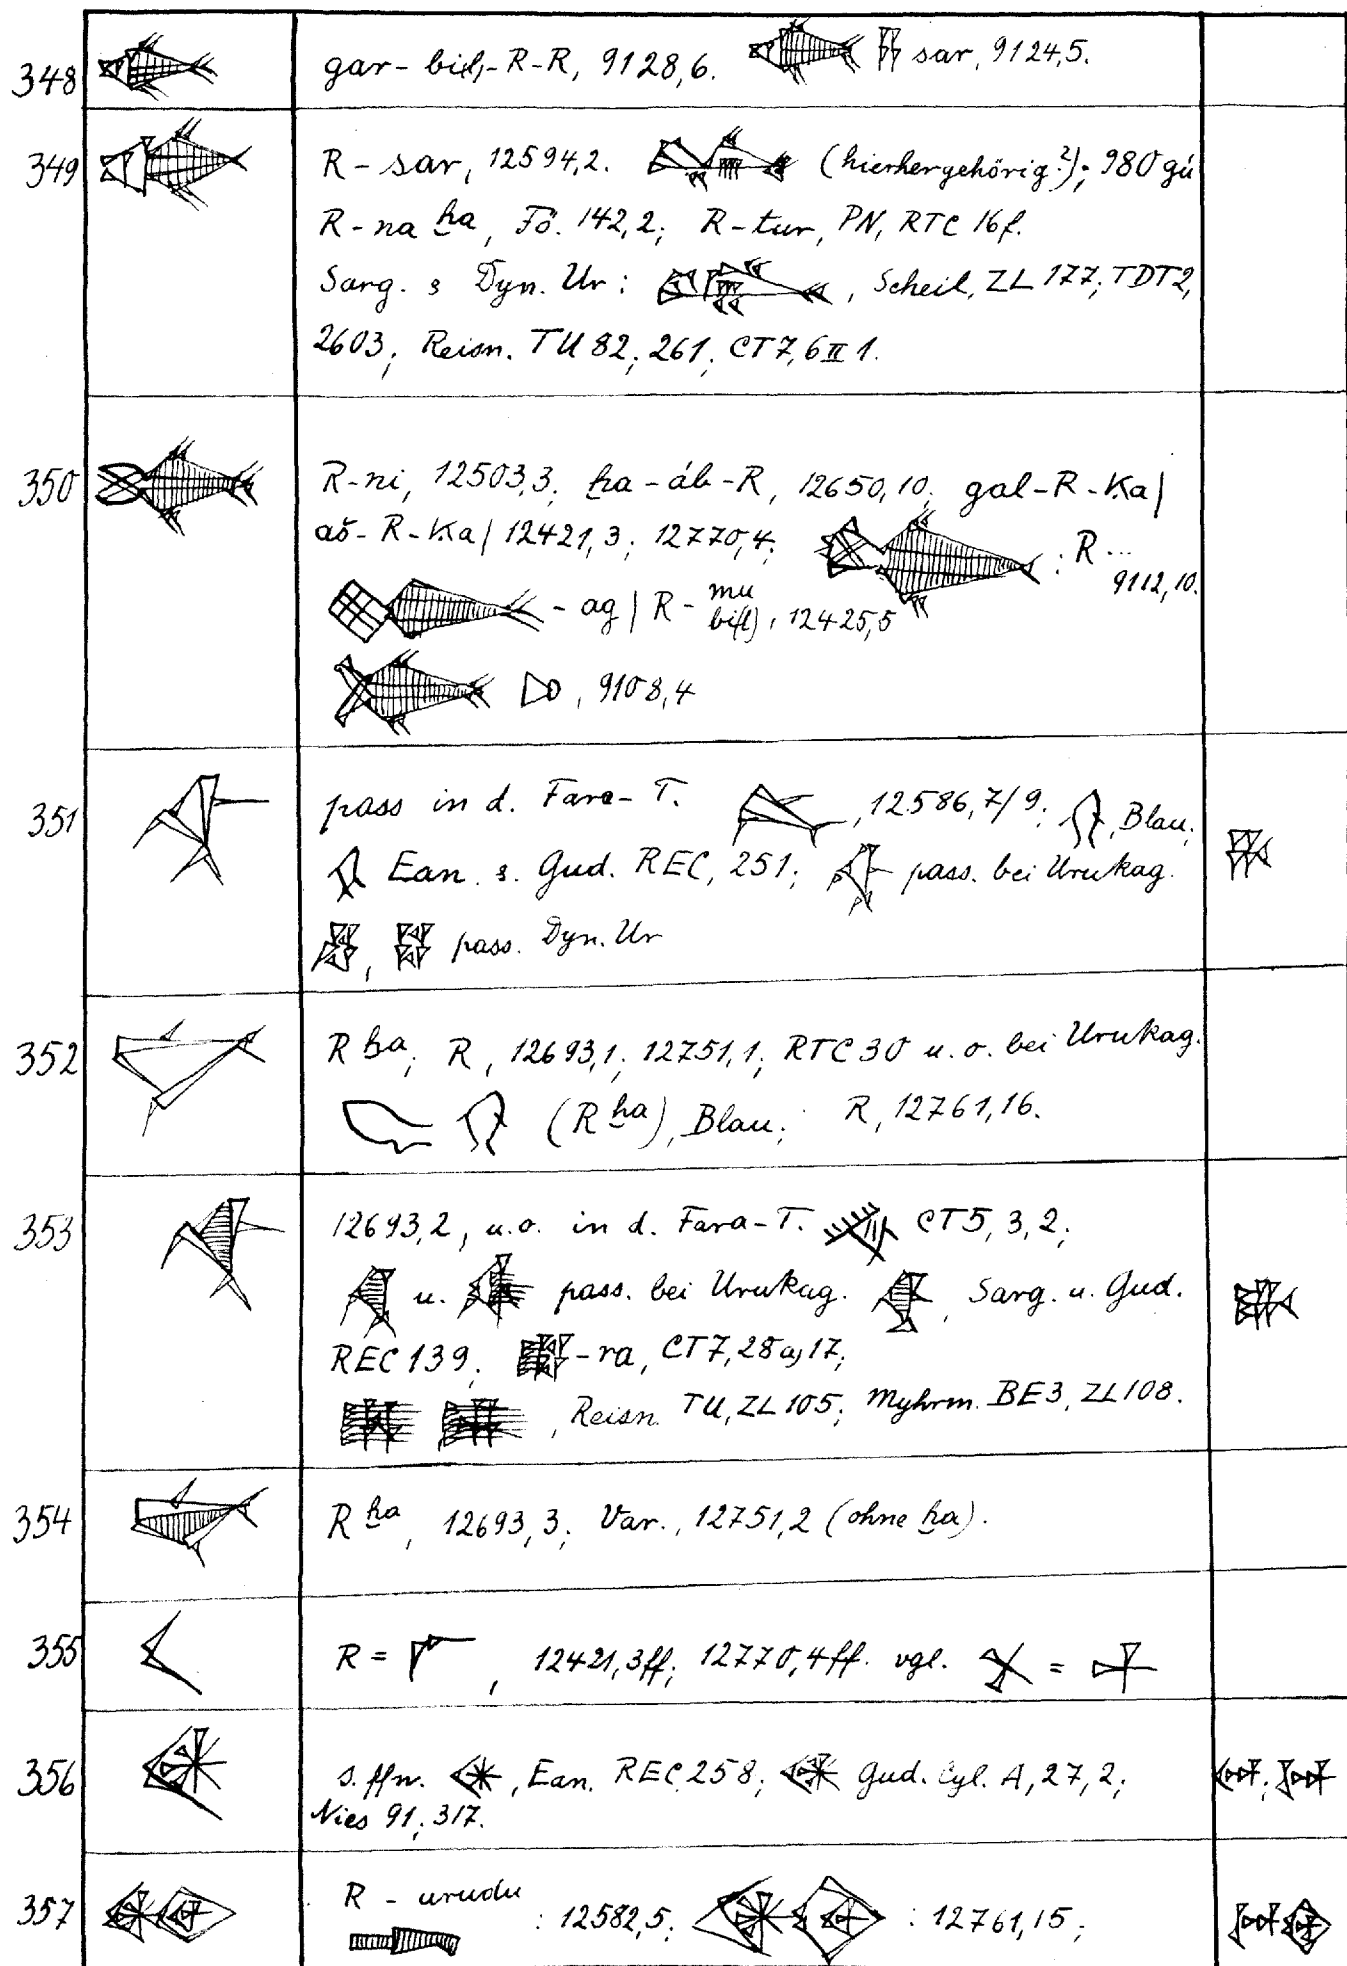 348 gar-biḫ-R-R, 9128,6. sar, 9124,5.
349 R-sar, 12594,2. (hierhergehörig?); 980 gú
R-na ḫa, Fö. 142,2; R-tur, PN, RTC 16f.
Sarg. s Dyn. Ur: , Scheil, ZL 177; TDT2,
2603; Reisn. TU 82; 261; CT7, 6 II 1.
350 R-ni, 12503,3; ḫa-áb-R, 12650,10; gal-R-Ka/
aš-R-Ka/ 12421,3; 12770,4; : R...
9112,10.
-ag / R-mu
, 12425,5
, 9108,4
351 pass in d. Fara-T. , 12586,7/9; , Blau;
Ean. s. Gud. REC, 251; pass. bei Urukag.
, pass. Dyn. Ur
352 R ḫa; R, 12693,1; 12751,1; RTC 30 u. o. bei Urukag.
(R ḫa), Blau; R, 12761,16.
353 12693,2, u.o. in d. Fara-T. CT5, 3, 2;
u. pass. bei Urukag. , Sarg. u. Gud.
REC 139; -ra, CT7, 28a, 17;
, Reisn. TU, ZL 105; Myhrm. BE3, ZL 108.
354 R ḫa, 12693,3; Var., 12751,2 (ohne ḫa).
355 R = , 12421,3ff; 12770,4ff. vgl. =
356 s. ffn. , Ean. REC 258; Gud. Cyl. A, 27, 2;
Nies 91; 317.
357 R - urudu : 12582,5; : 12761,15;